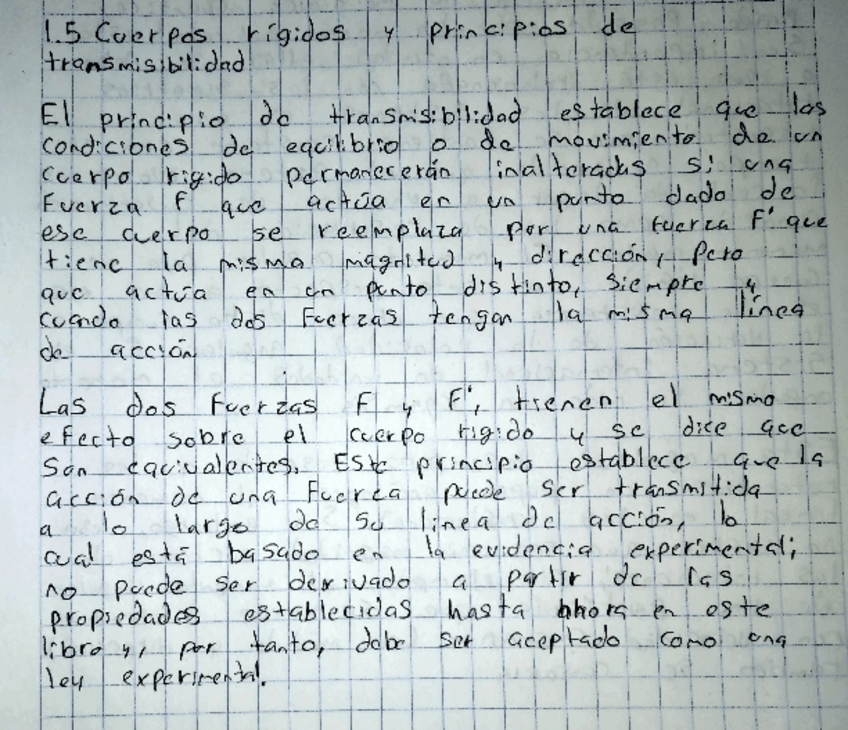 1.5 Cuerpos rígidos y principios de
transmisibilidad
El principio de transmisibilidad establece que las
condiciones de equilibrio o de movimiento de un
cuerpo rigido permanecerán inalteradas si una
Fuerza F que actúa en un punto dado de
ese cuerpo se reemplaza por una fuerza F' que
tiene la misma magnitud y dirección, Pero
que actúa en un punto distinto, siempre y
cuando las dos Fuerzas tengan la misma línea
de acción
Las dos Fuerzas F y F', tienen el mismo
efecto sobre el cuerpo rigido y se dice que
Son equivalentes. Este principio establece que la
acción de una Fuerza puede ser transmitida
a lo largo de su linea de acción, lo
cual está basado en la evidencia experimental;
no puede ser derivado a partir de las
propiedades establecidas hasta ahora en este
libro y, por tanto, debe ser aceptado como una
ley experimental.